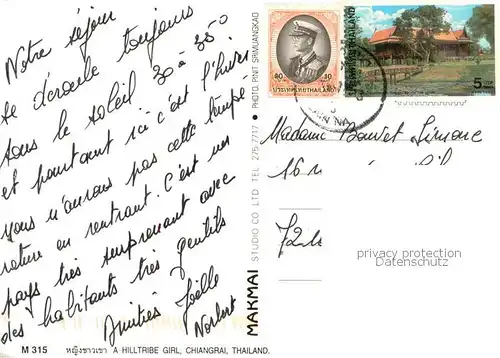 Notre séjour
se déroule toujours
sous le soleil 30 à 35°
et pourtant ici c'est l'hiver
vous n'aurons pas cette tempé
rature en rentrant. C'est un
pays très surprenant avec
des habitants très gentils
Amitiés Joëlle
Norbert
M 315 หญิงชาวเขา A HILLTRIBE GIRL, CHIANGRAI, THAILAND.
MAKMAI STUDIO CO LTD TEL 275-7717 • PHOTO. PINIT SRIMUANGKAO
80 80
ประเทศไทย THAILAND
ประเทศไทย THAILAND
5
Madame Bouvet Simone
16
72
privacy protection
Datenschutz